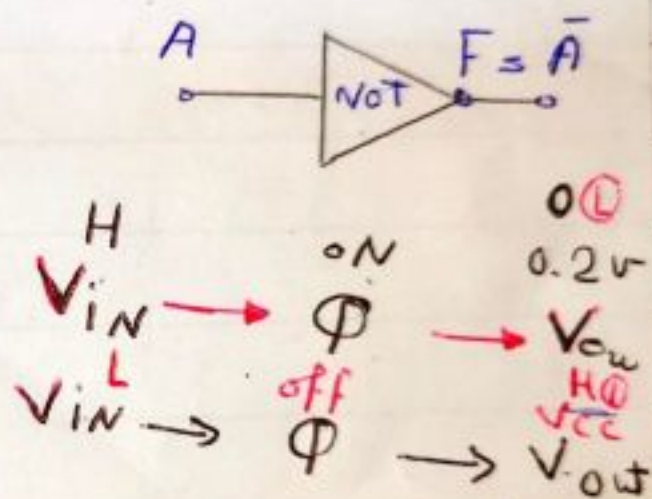 A
NOT
F = Ā
H
VIN
ON
φ
0 Ⓛ
0.2v
Vou
L
VIN
off
φ
H ①
VCC
Vout